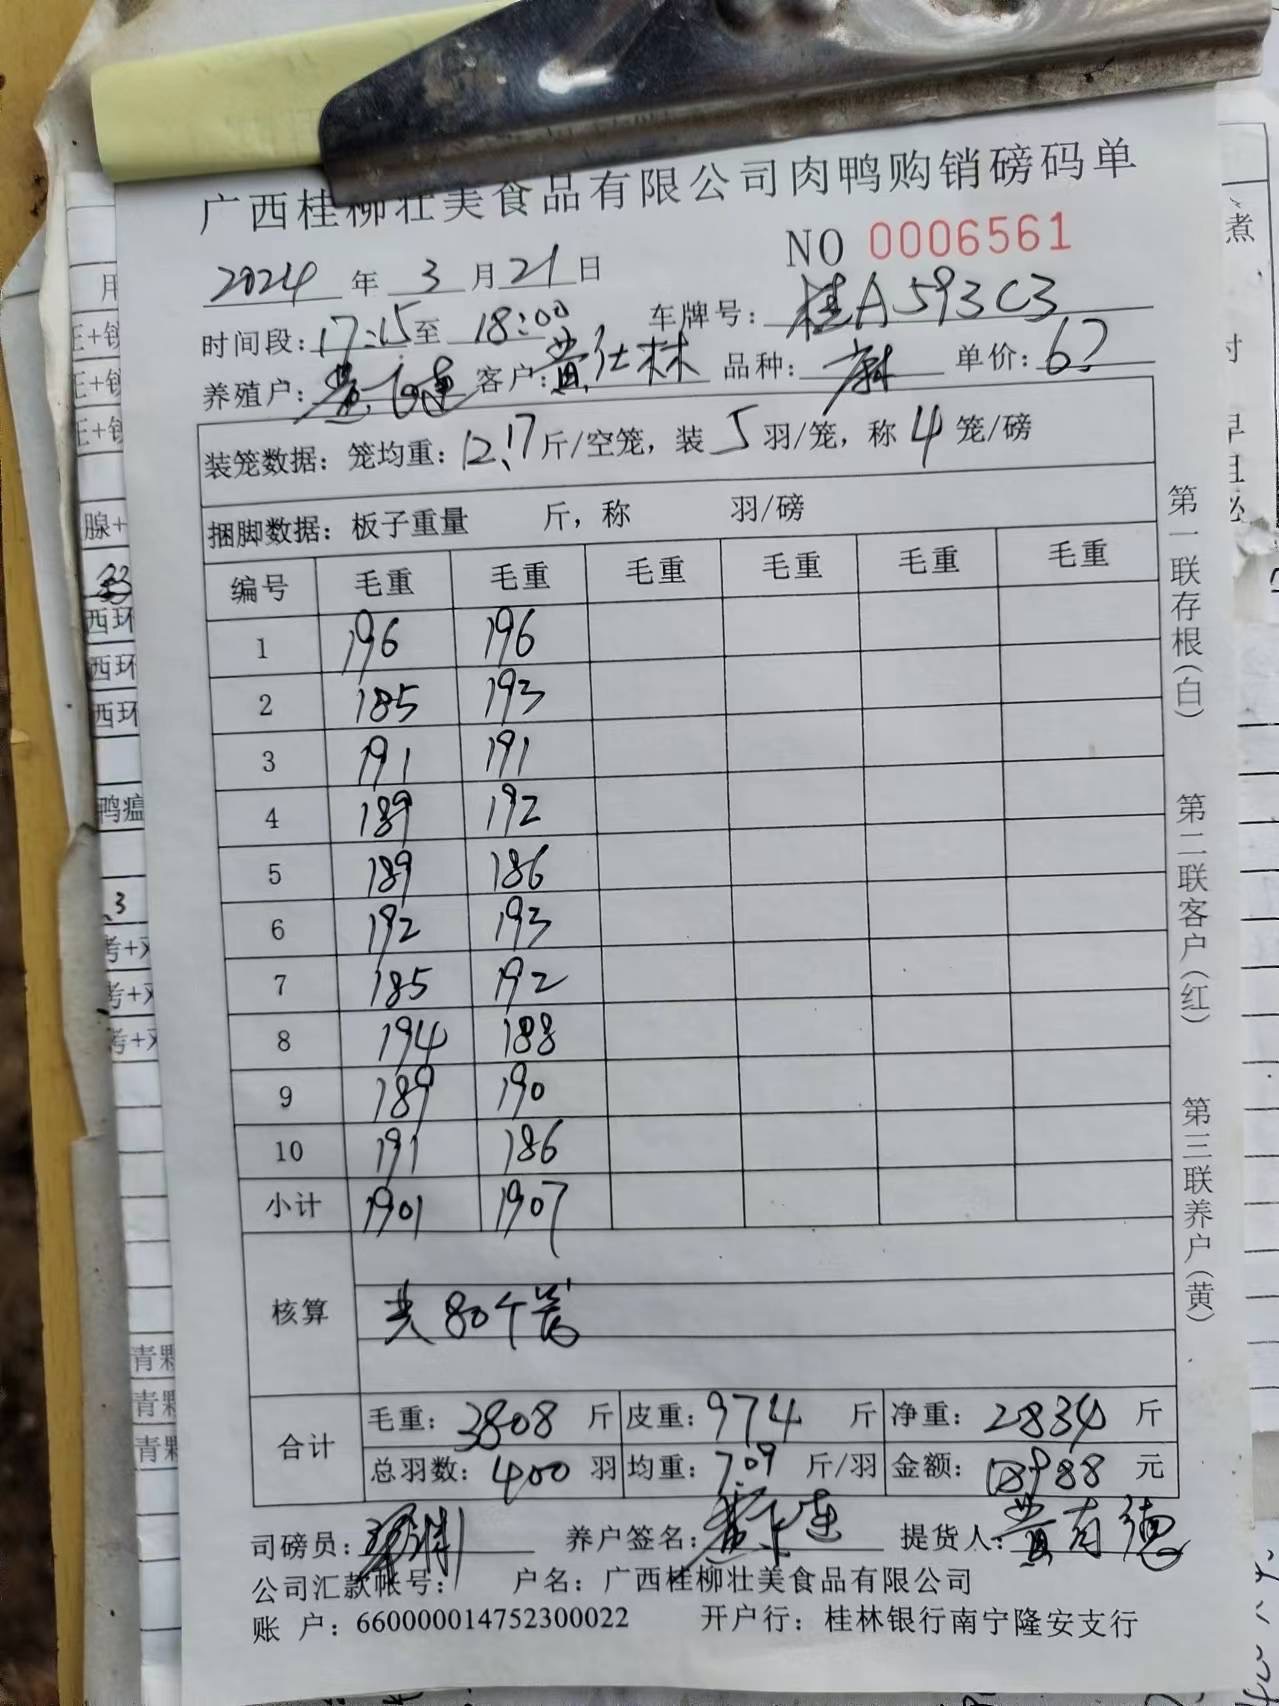 广西桂柳壮美食品有限公司肉鸭购销磅码单
NO 0006561
2024 年 3 月 21 日
时间段: 17:15 至 18:00 车牌号: 桂A593C3
养殖户: 客户: 黄仕林 品种: 麻 单价:
装笼数据: 笼均重: 12.17 斤/空笼, 装 5 羽/笼, 称 4 笼/磅
捆脚数据: 板子重量 斤, 称 羽/磅
编号 毛重 毛重 毛重 毛重 毛重 毛重
1 196 196
2 185 193
3 191 191
4 189 192
5 189 186
6 192 193
7 185 192
8 194 188
9 189 190
10 191 186
小计 1901 1907
核算
共80个
合计
毛重: 3808 斤 皮重: 974 斤 净重: 2834 斤
总羽数: 400 羽 均重: 7.09 斤/羽 金额: 18988 元
司磅员: 养户签名: 提货人: 黄有德
公司汇款帐号: 户名: 广西桂柳壮美食品有限公司
账 户: 660000014752300022 开户行: 桂林银行南宁隆安支行
第一联存根(白) 第二联客户(红) 第三联养户(黄)
煮
腺+
西环
西环
西环
鸭瘟
青颗
青颗
青颗